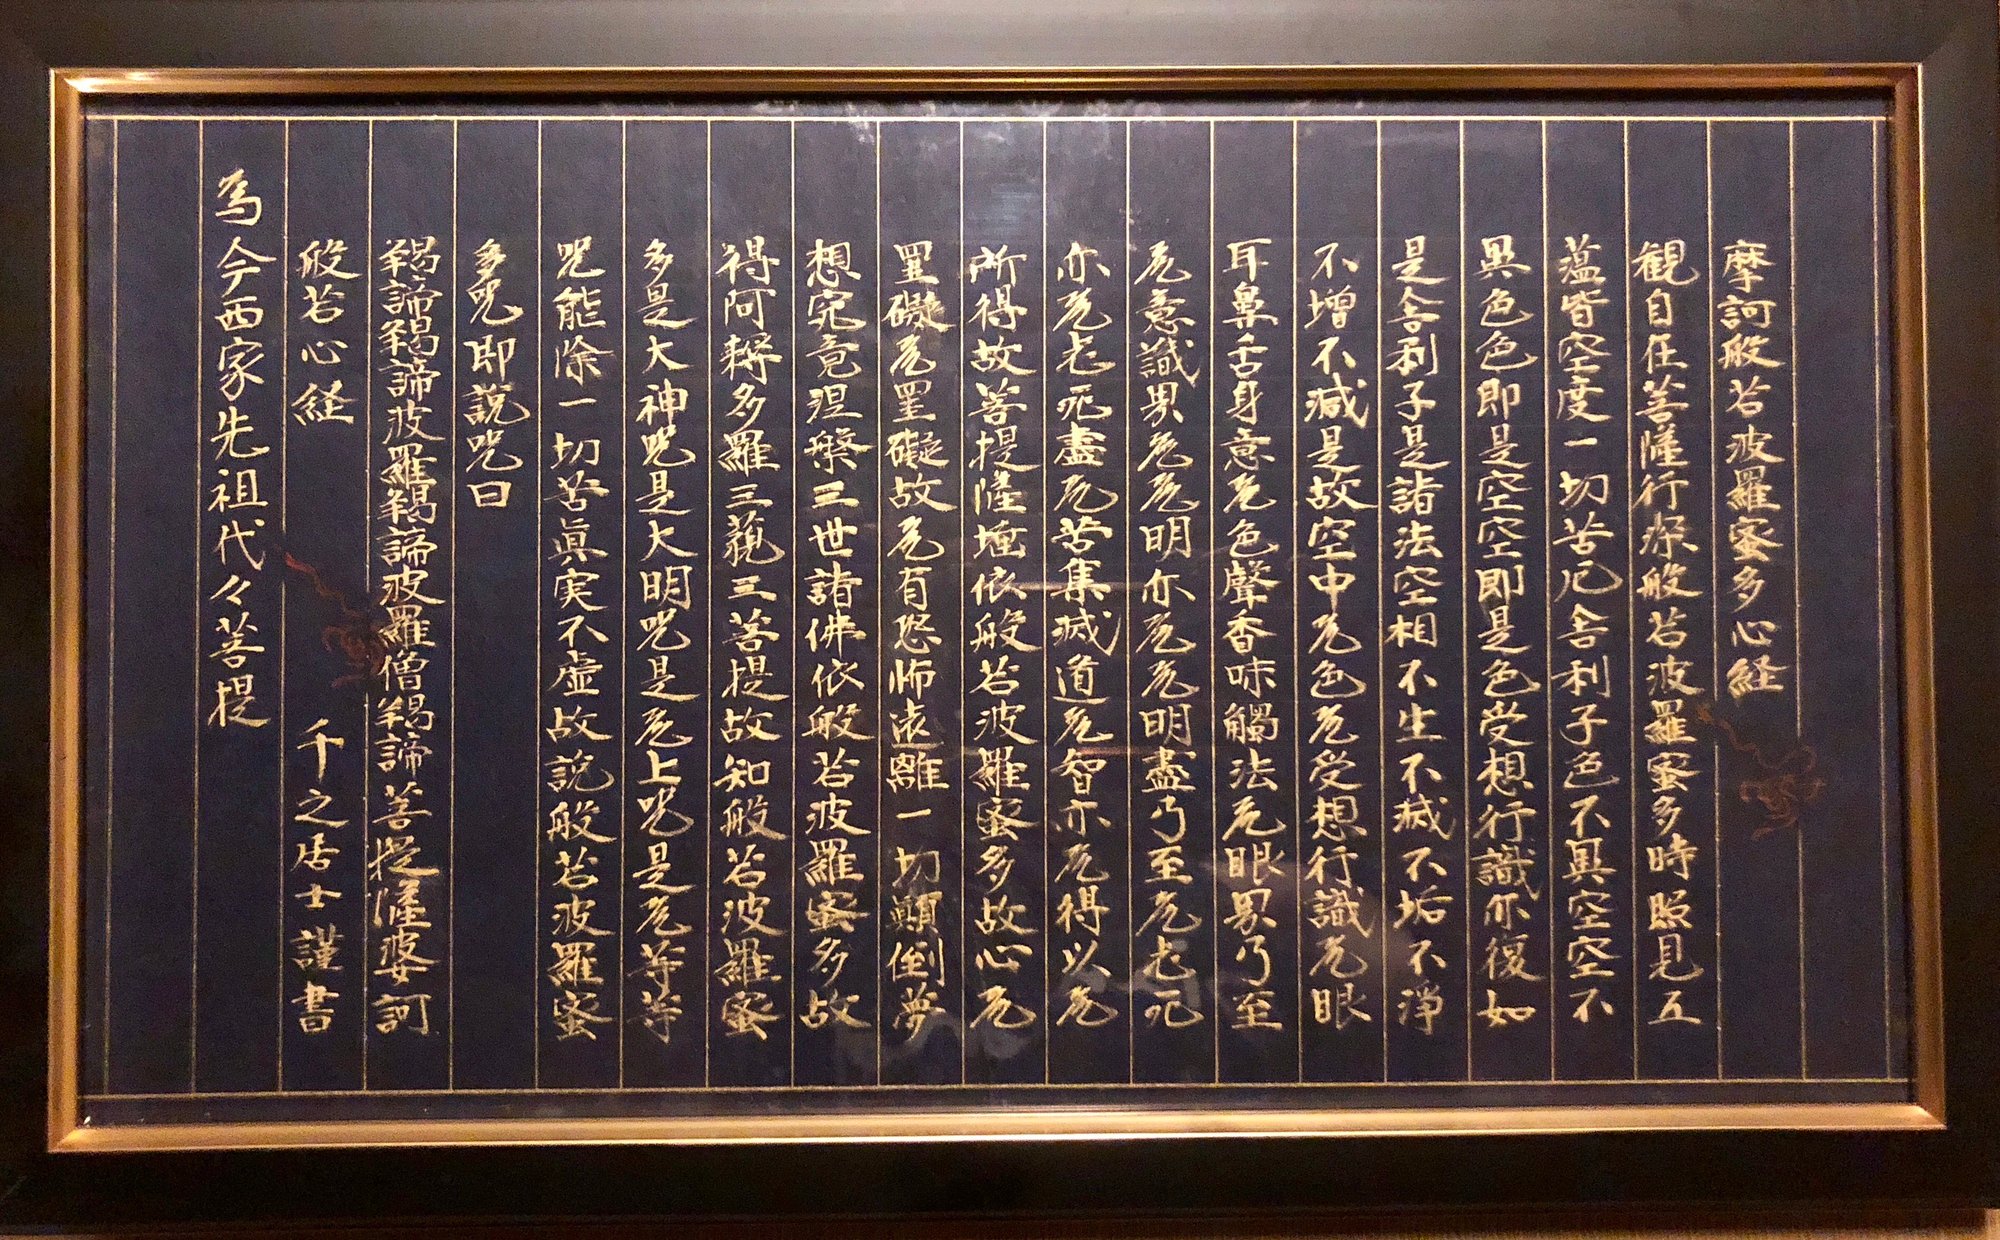 摩訶般若波羅蜜多心経
観自在菩薩行深般若波羅蜜多時照見五
蘊皆空度一切苦厄舎利子色不異空空不
異色色即是空空即是色受想行識亦復如
是舎利子是諸法空相不生不滅不垢不浄
不増不減是故空中无色无受想行識无眼
耳鼻舌身意无色聲香味觸法无眼界乃至
无意識界无无明亦无无明盡乃至无老死
亦无老死盡无苦集滅道无智亦无得以无
所得故菩提薩埵依般若波羅蜜多故心无
罣礙无罣礙故无有恐怖遠離一切顛倒夢
想究竟涅槃三世諸佛依般若波羅蜜多故
得阿耨多羅三藐三菩提故知般若波羅蜜
多是大神咒是大明咒是无上咒是无等等
咒能除一切苦眞実不虚故説般若波羅蜜
多咒即説咒曰
羯諦羯諦波羅羯諦波羅僧羯諦菩提薩婆訶
般若心経 千之居士謹書
為今西家先祖代々菩提